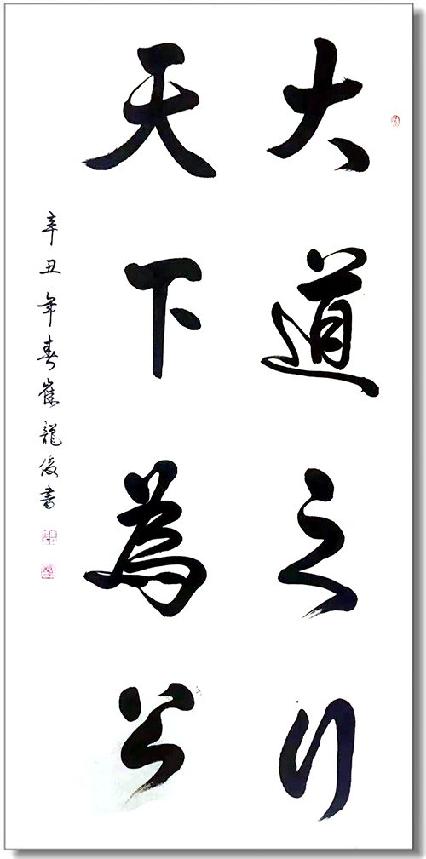 大道之行
天下為公
辛丑年春崔龍俊書